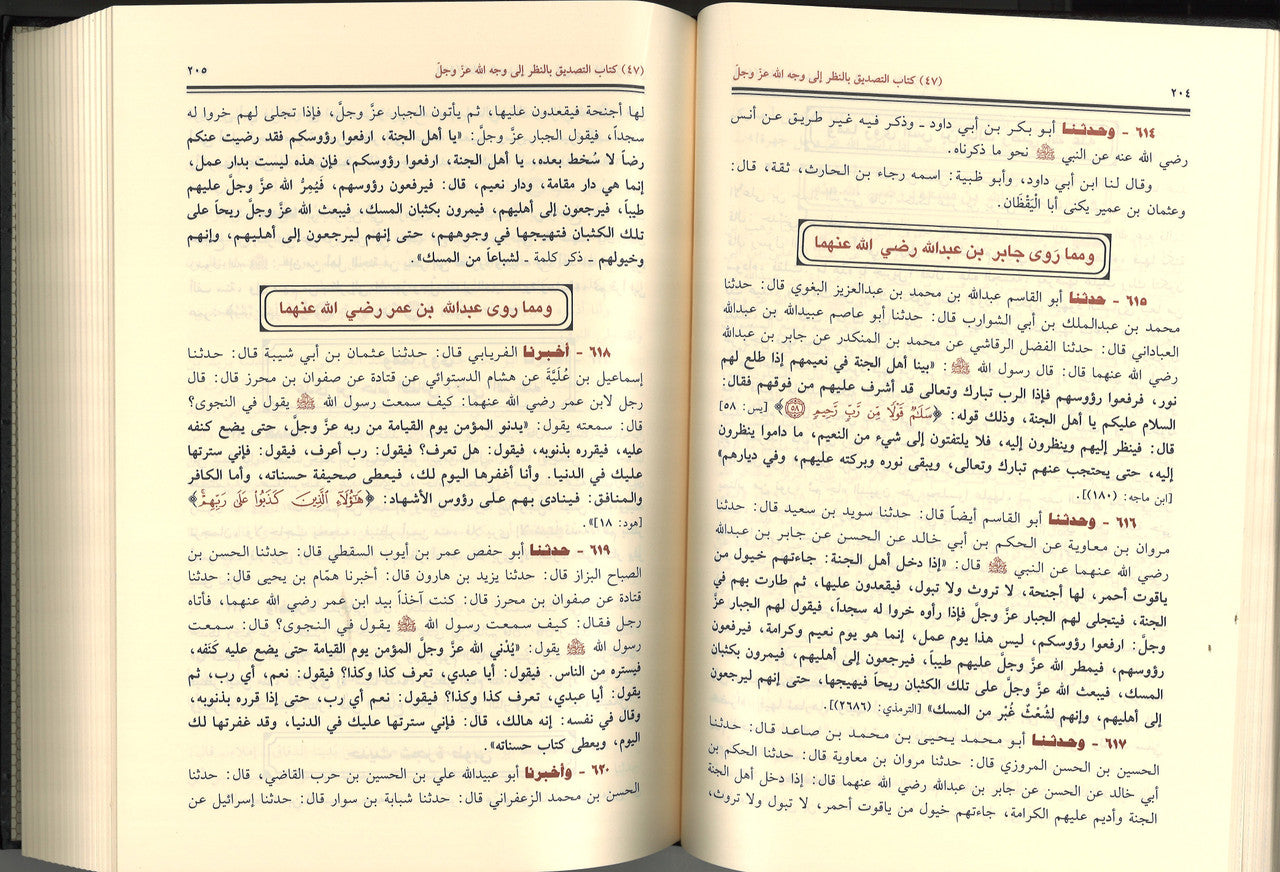 (٤٧) كتاب التصديق بالنظر إلى وجه الله عزّ وجلّ
٢٠٤
٦١٤ - وحدثنا أبو بكر بن أبي داود ـ وذكر فيه غير طريق عن أنس
رضي الله عنه عن النبي ﷺ نحو ما ذكرناه.
وقال لنا ابن أبي داود، وأبو ظبية: اسمه رجاء بن الحارث، ثقة، قال:
وعثمان بن عمير يكنى أبا الْيَقْظَان.
ومما رَوى جابر بن عبدالله رضي الله عنهما
٦١٥ - حدثنا أبو القاسم عبدالله بن محمد بن عبدالعزيز البغوي قال: حدثنا
محمد بن عبدالملك بن أبي الشوارب قال: حدثنا أبو عاصم عبيدالله بن عبدالله
العباداني قال: حدثنا الفضل الرقاشي عن محمد بن المنكدر عن جابر بن عبدالله
رضي الله عنهما قال: قال رسول الله ﷺ: «بينا أهل الجنة في نعيمهم إذا طلع لهم
نور، فرفعوا رؤوسهم فإذا الرب تبارك وتعالى قد أشرف عليهم من فوقهم فقال:
السلام عليكم يا أهل الجنة، وذلك قوله: ﴿سَلَٰمٌ قَوْلًا مِّن رَّبٍّ رَّحِيمٍ ٥٨﴾ [يس: ٥٨]
قال: فينظر إليهم وينظرون إليه، فلا يلتفتون إلى شيء من النعيم، ما داموا ينظرون
إليه، حتى يحتجب عنهم تبارك وتعالى، ويبقى نوره وبركته عليهم، وفي ديارهم»
[ابن ماجه: (١٨٠)].
٦١٦ - وحدثنا أبو القاسم أيضاً قال: حدثنا سويد بن سعيد قال: حدثنا
مروان بن معاوية عن الحكم بن أبي خالد عن الحسن عن جابر بن عبدالله
رضي الله عنهما عن النبي ﷺ قال: «إذا دخل أهل الجنة: جاءتهم خيول من
ياقوت أحمر، لها أجنحة، لا تروث ولا تبول، فيقعدون عليها، ثم طارت بهم في
الجنة، فيتجلى لهم الجبار عزَّ وجلَّ فإذا رأوه خروا له سجداً، فيقول لهم الجبار عزَّ
وجلَّ: ارفعوا رؤوسكم، ليس هذا يوم عمل، إنما هو يوم نعيم وكرامة، فيرفعون
رؤوسهم، فيمطر الله عزَّ وجلَّ عليهم طيباً، فيرجعون إلى أهليهم، فيمرون بكثبان
المسك، فيبعث الله عزَّ وجلَّ على تلك الكثبان ريحاً فيهيجها، حتى إنهم ليرجعون
إلى أهليهم، وإنهم لشُعْثٌ غُبْر من المسك» [الترمذي: (٢٦٨٦)].
٦١٧ - وحدثنا أبو محمد يحيى بن محمد بن صاعد قال: حدثنا
الحسين بن الحسن المروزي قال: حدثنا مروان بن معاوية قال: حدثنا الحكم بن
أبي خالد عن الحسن عن جابر بن عبدالله رضي الله عنهما قال: إذا دخل أهل الجنة
الجنة وأديم عليهم الكرامة، جاءتهم خيول من ياقوت أحمر، لا تبول ولا تروث،
(٤٧) كتاب التصديق بالنظر إلى وجه الله عزّ وجلّ
٢٠٥
لها أجنحة فيقعدون عليها، ثم يأتون الجبار عزَّ وجلَّ، فإذا تجلى لهم خروا له
سجداً، فيقول الجبار عزَّ وجلَّ: «يا أهل الجنة، ارفعوا رؤوسكم فقد رضيت عنكم
رضاً لا سُخط بعده، يا أهل الجنة، ارفعوا رؤوسكم، فإن هذه ليست بدار عمل،
إنما هي دار مقامة، ودار نعيم، قال: فيرفعون رؤوسهم، فيُمِرُّ الله عزَّ وجلَّ عليهم
طيباً، فيرجعون إلى أهليهم، فيمرون بكثبان المسك، فيبعث الله عزَّ وجلَّ ريحاً على
تلك الكثبان فتهيجها في وجوههم، حتى إنهم ليرجعون إلى أهليهم، وإنهم
وخيولهم ـ ذكر كلمة ـ لشباعاً من المسك».
ومما روى عبدالله بن عمر رضي الله عنهما
٦١٨ - أخبرنا الفريابي قال: حدثنا عثمان بن أبي شيبة قال: حدثنا
إسماعيل بن عُلَيَّةَ عن هشام الدستوائي عن قتادة عن صفوان بن محرز قال: قال
رجل لابن عمر رضي الله عنهما: كيف سمعت رسول الله ﷺ يقول في النجوى؟
قال: سمعته يقول: «يدنو المؤمن يوم القيامة من ربه عزَّ وجلَّ، حتى يضع كنفه
عليه، فيقرره بذنوبه، فيقول: هل تعرف؟ فيقول: رب أعرف، فيقول: فإني سترتها
عليك في الدنيا. وأنا أغفرها اليوم لك، فيعطى صحيفة حسناته، وأما الكافر
والمنافق: فينادى بهم على رؤوس الأشهاد: ﴿هَٰٓؤُلَآءِ ٱلَّذِينَ كَذَبُوا۟ عَلَىٰ رَبِّهِمْ﴾
[هود: ١٨]».
٦١٩ - حدثنا أبو حفص عمر بن أيوب السقطي قال: حدثنا الحسن بن
الصباح البزاز قال: حدثنا يزيد بن هارون قال: أخبرنا همّام بن يحيى قال: حدثنا
قتادة عن صفوان بن محرز قال: كنت آخذاً بيد ابن عمر رضي الله عنهما، فأتاه
رجل فقال: كيف سمعت رسول الله ﷺ يقول في النجوى؟ قال: سمعت
رسول الله ﷺ يقول: «يُدْني الله عزَّ وجلَّ المؤمن يوم القيامة حتى يضع عليه كَنَفه،
فيستره من الناس. فيقول: أيا عبدي، تعرف كذا وكذا؟ فيقول: نعم، أي رب، ثم
يقول: أيا عبدي، تعرف كذا وكذا؟ فيقول: نعم أي رب، حتى إذا قرره بذنوبه،
وقال في نفسه: إنه هالك، قال: فإني سترتها عليك في الدنيا، وقد غفرتها لك
اليوم، ويعطى كتاب حسناته».
٦٢٠ - وأخبرنا أبو عبيدالله علي بن الحسين بن حرب القاضي، قال: حدثنا
الحسن بن محمد الزعفراني قال: حدثنا شبابة بن سوار قال: حدثنا إسرائيل عن